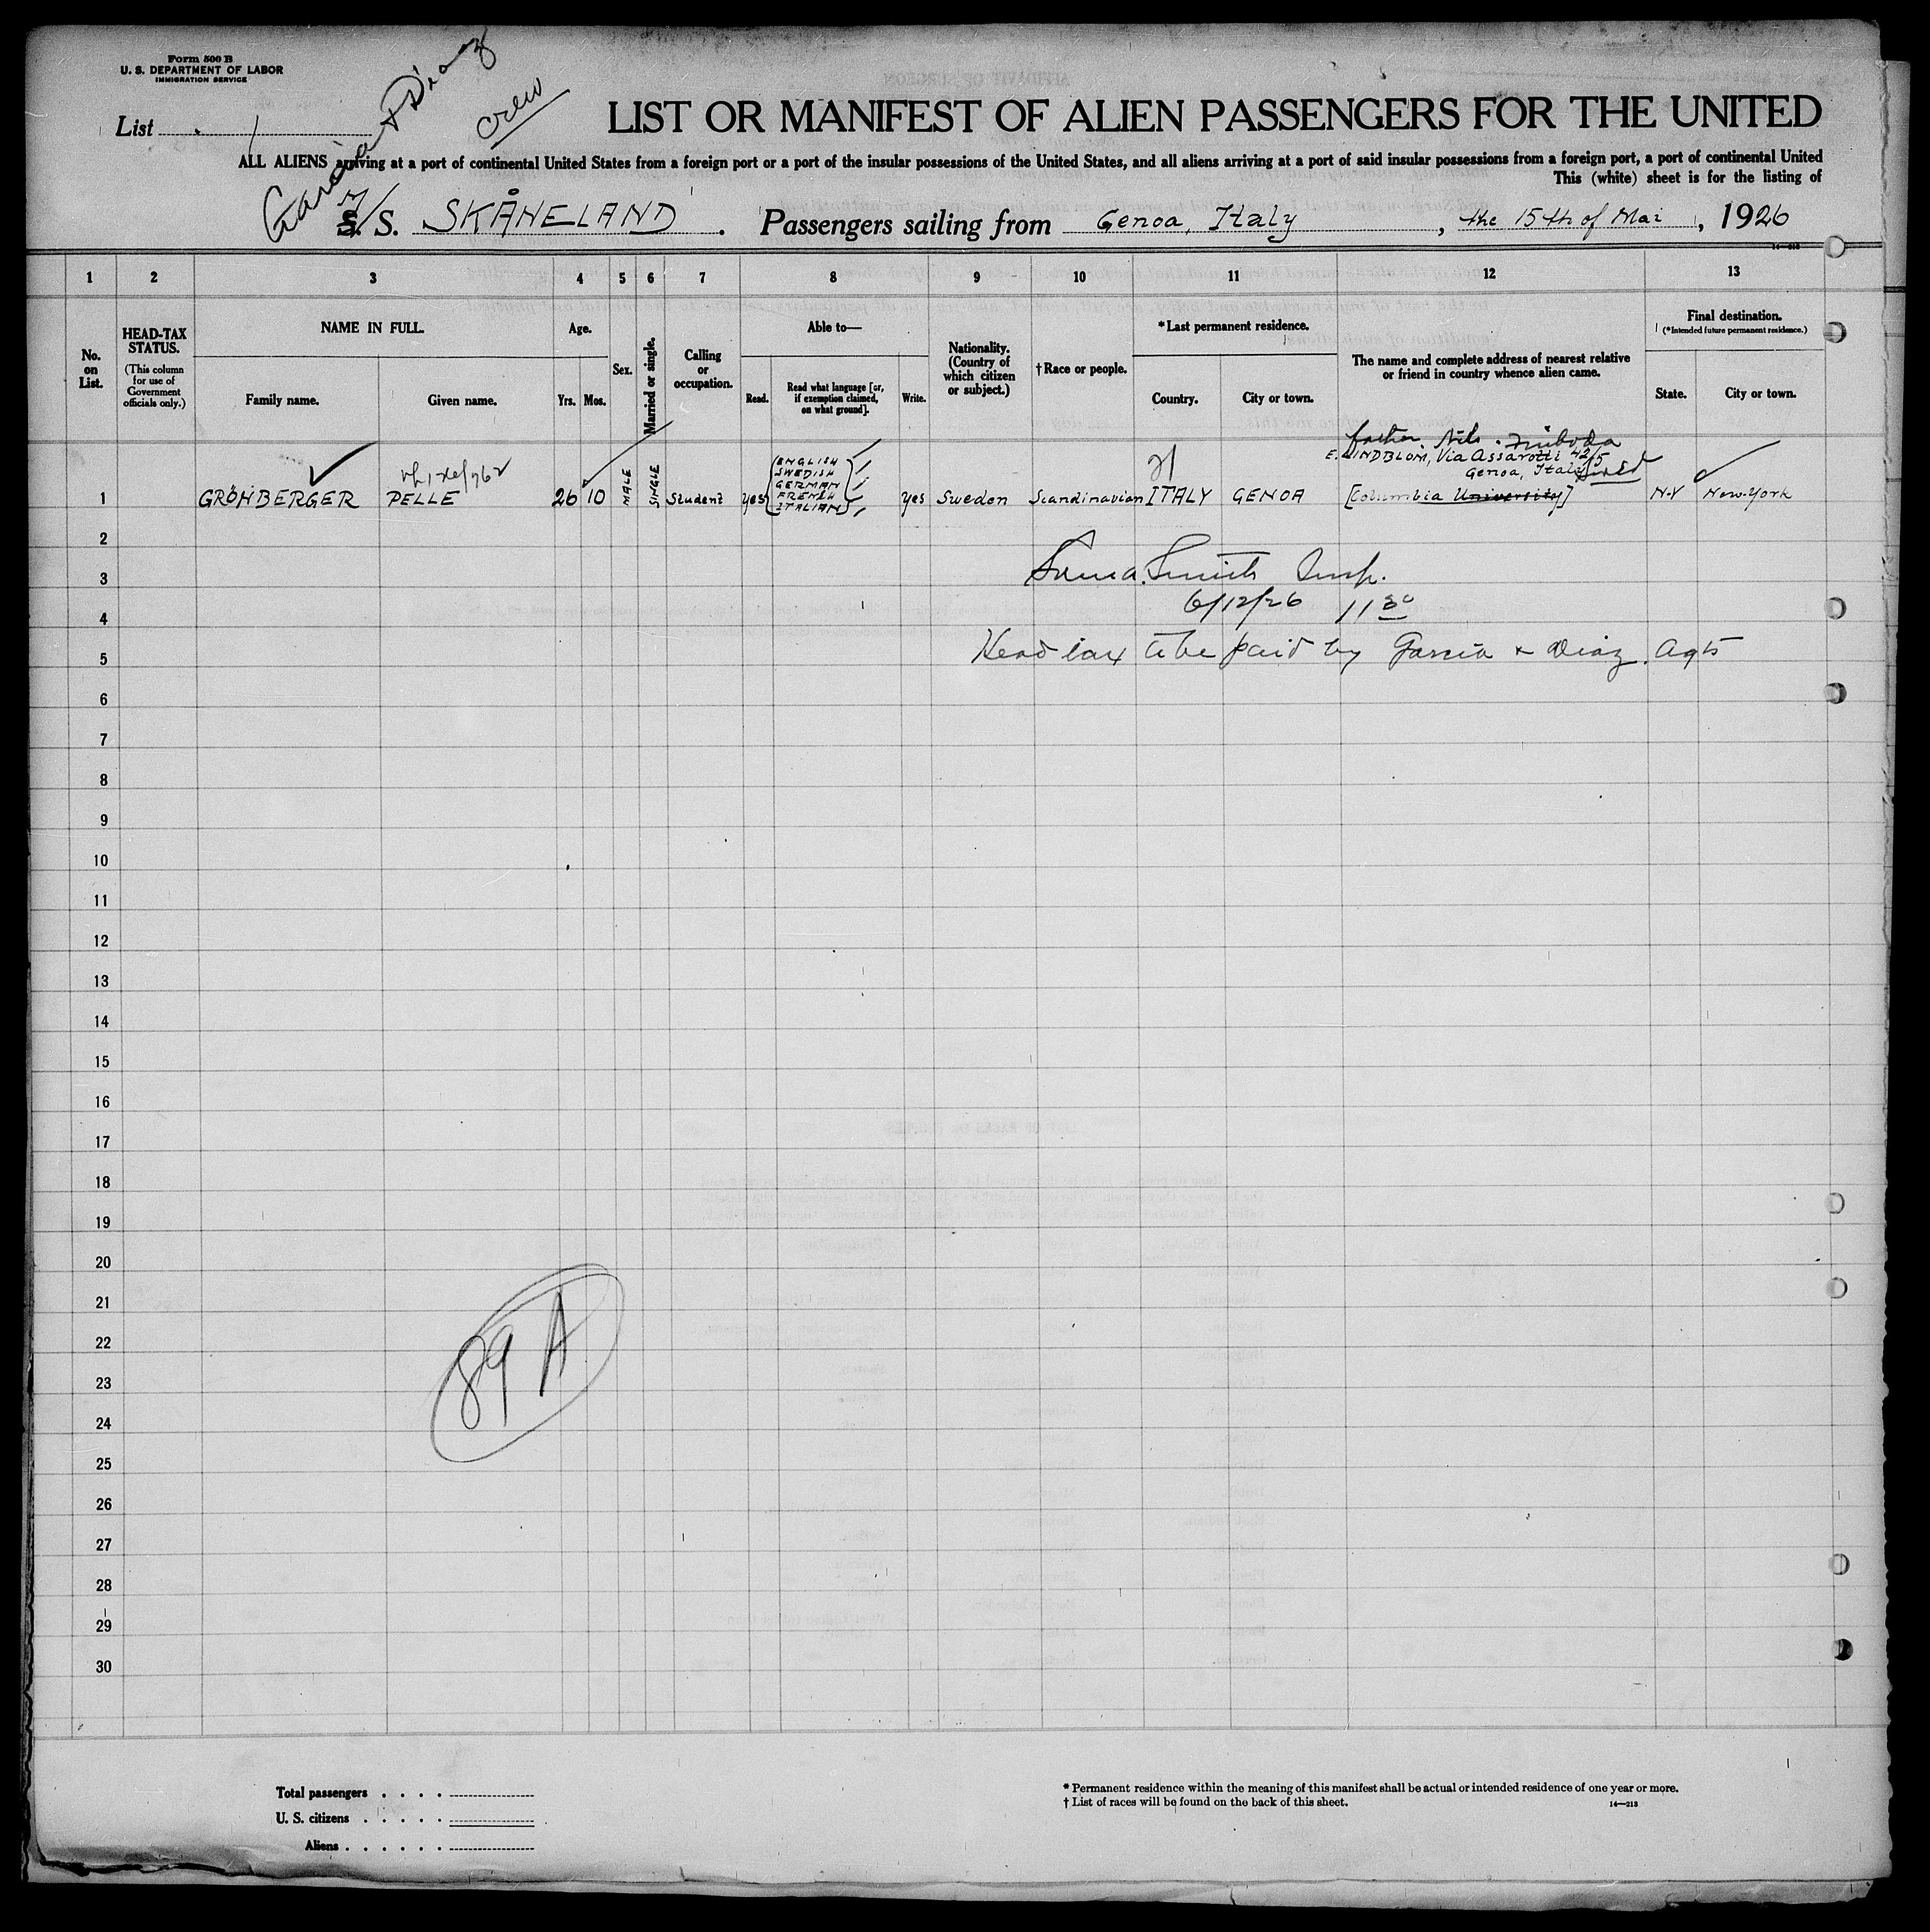 Form 500 B
U. S. DEPARTMENT OF LABOR
IMMIGRATION SERVICE
Garcia & Diaz
crew
List 1
LIST OR MANIFEST OF ALIEN PASSENGERS FOR THE UNITED
ALL ALIENS arriving at a port of continental United States from a foreign port or a port of the insular possessions of the United States, and all aliens arriving at a port of said insular possessions from a foreign port, a port of continental United
This (white) sheet is for the listing of
M/S. SKÅNELAND. Passengers sailing from Genoa, Italy, the 15th of Mai, 1926
14—213
1 2 3 4 5 6 7 8 9 10 11 12 13
No. on List.
HEAD-TAX STATUS.
(This column for use of Government officials only.)
NAME IN FULL.
Family name. Given name.
Age.
Yrs. Mos.
Sex.
Married or single.
Calling or occupation.
Able to—
Read. Read what language [or, if exemption claimed, on what ground]. Write.
Nationality. (Country of which citizen or subject.)
† Race or people.
* Last permanent residence.
Country. City or town.
The name and complete address of nearest relative or friend in country whence alien came.
Final destination.
(*Intended future permanent residence.)
State. City or town.
father Nils
E. LINDBLOM, Via Assarotti 42/5
Genoa, Italy
ENGLISH
SWEDISH
GERMAN
FRENCH
ITALIAN
1 GRÖNBERGER PELLE 26 10 MALE SINGLE Student yes yes Sweden Scandinavian ITALY GENOA [Columbia University] N.Y New-York
2
3 Smith Insp.
6/12/26 11 30
4
5 Head tax to be paid by Garcia & Diaz. Agts
6
7
8
9
10
11
12
13
14
15
16
17
18
19
20
21
22
23
89 A
24
25
26
27
28
29
30
Total passengers
U. S. citizens
Aliens
* Permanent residence within the meaning of this manifest shall be actual or intended residence of one year or more.
† List of races will be found on the back of this sheet.
14—213